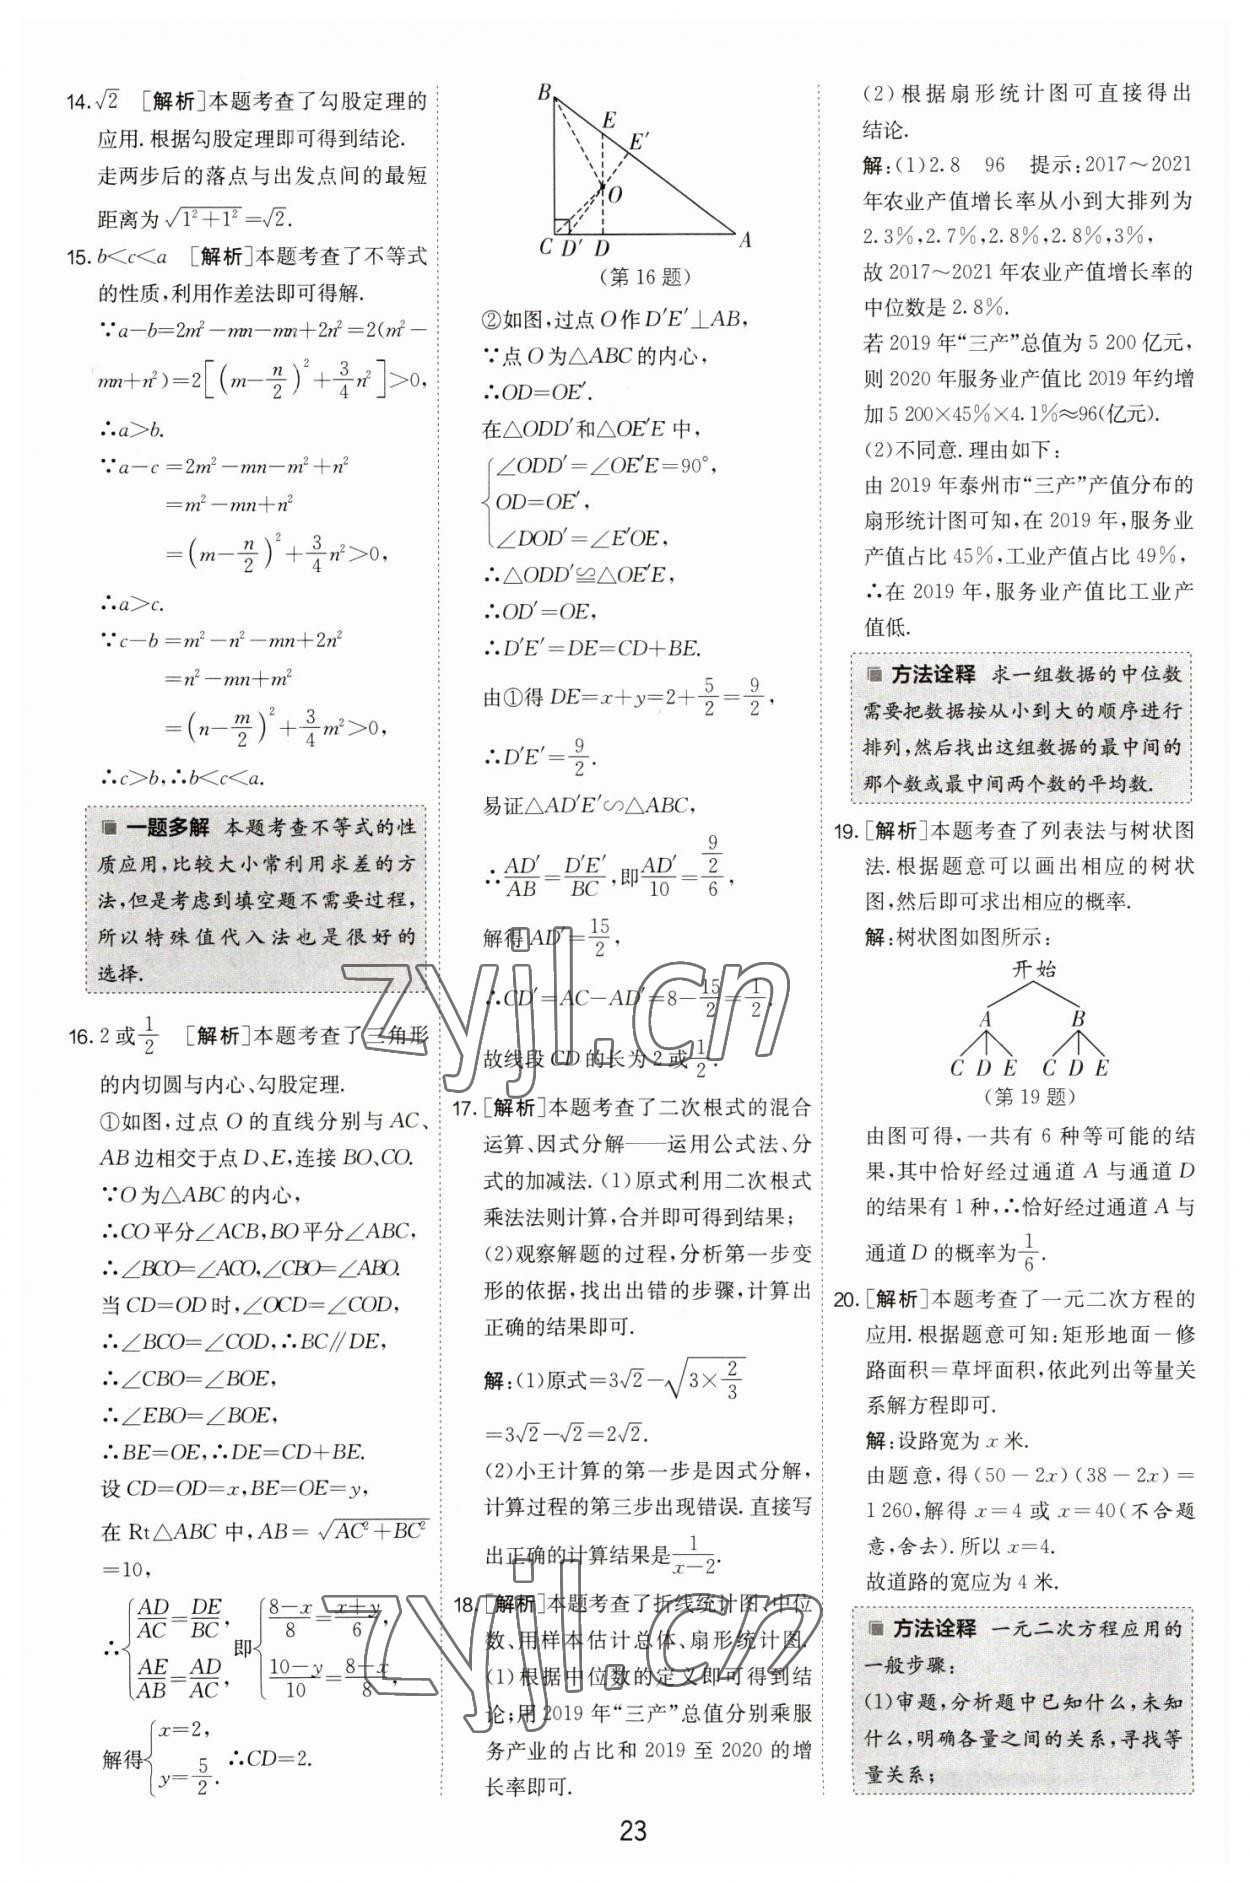 14. √2 ［解析］本题考查了勾股定理的
应用.根据勾股定理即可得到结论.
走两步后的落点与出发点间的最短
距离为√(1²+1²)=√2.
15. b<c<a ［解析］本题考查了不等式
的性质,利用作差法即可得解.
∵a-b=2m²-mn-mn+2n²=2(m²-
mn+n²)=2[(m-n/2)²+3/4n²]>0,
∴a>b.
∵a-c=2m²-mn-m²+n²
=m²-mn+n²
=(m-n/2)²+3/4n²>0,
∴a>c.
∵c-b=m²-n²-mn+2n²
=n²-mn+m²
=(n-m/2)²+3/4m²>0,
∴c>b,∴b<c<a.
一题多解 本题考查不等式的性
质应用,比较大小常利用求差的方
法,但是考虑到填空题不需要过程,
所以特殊值代入法也是很好的
选择.
16. 2或1/2 ［解析］本题考查了三角形
的内切圆与内心、勾股定理.
①如图,过点O的直线分别与AC、
AB边相交于点D、E,连接BO、CO.
∵O为△ABC的内心,
∴CO平分∠ACB,BO平分∠ABC,
∴∠BCO=∠ACO,∠CBO=∠ABO.
当CD=OD时,∠OCD=∠COD,
∴∠BCO=∠COD,∴BC∥DE,
∴∠CBO=∠BOE,
∴∠EBO=∠BOE,
∴BE=OE,∴DE=CD+BE.
设CD=OD=x,BE=OE=y,
在Rt△ABC中,AB=√(AC²+BC²)
=10,
∴{AD/AC=DE/BC, AE/AB=AD/AC, 即{(8-x)/8=(x+y)/6, (10-y)/10=(8-x)/8,
解得{x=2, y=5/2. ∴CD=2.
B
E
E′
O
C D′ D A
(第16题)
②如图,过点O作D′E′⊥AB,
∵点O为△ABC的内心,
∴OD=OE′.
在△ODD′和△OE′E中,
{∠ODD′=∠OE′E=90°,
OD=OE′,
∠DOD′=∠E′OE,
∴△ODD′≌△OE′E,
∴OD′=OE,
∴D′E′=DE=CD+BE.
由①得DE=x+y=2+5/2=9/2,
∴D′E′=9/2.
易证△AD′E′∽△ABC,
∴AD′/AB=D′E′/BC,即AD′/10=(9/2)/6,
解得AD′=15/2,
∴CD′=AC-AD′=8-15/2=1/2.
故线段CD的长为2或1/2.
17. ［解析］本题考查了二次根式的混合
运算、因式分解——运用公式法、分
式的加减法.(1)原式利用二次根式
乘法法则计算,合并即可得到结果;
(2)观察解题的过程,分析第一步变
形的依据,找出出错的步骤,计算出
正确的结果即可.
解:(1)原式=3√2-√(3×2/3)
=3√2-√2=2√2.
(2)小王计算的第一步是因式分解,
计算过程的第三步出现错误.直接写
出正确的计算结果是1/(x-2).
18. ［解析］本题考查了折线统计图、中位
数、用样本估计总体、扇形统计图.
(1)根据中位数的定义即可得到结
论;用2019年“三产”总值分别乘服
务产业的占比和2019至2020的增
长率即可.
(2)根据扇形统计图可直接得出
结论.
解:(1)2.8 96 提示:2017～2021
年农业产值增长率从小到大排列为
2.3%,2.7%,2.8%,2.8%,3%,
故2017～2021年农业产值增长率的
中位数是2.8%.
若2019年“三产”总值为5 200亿元,
则2020年服务业产值比2019年约增
加5 200×45%×4.1%≈96(亿元).
(2)不同意.理由如下:
由2019年泰州市“三产”产值分布的
扇形统计图可知,在2019年,服务业
产值占比45%,工业产值占比49%,
∴在2019年,服务业产值比工业产
值低.
方法诠释 求一组数据的中位数
需要把数据按从小到大的顺序进行
排列,然后找出这组数据的最中间的
那个数或最中间两个数的平均数.
19. ［解析］本题考查了列表法与树状图
法.根据题意可以画出相应的树状
图,然后即可求出相应的概率.
解:树状图如图所示:
开始
A B
C D E C D E
(第19题)
由图可得,一共有6种等可能的结
果,其中恰好经过通道A与通道D
的结果有1种,∴恰好经过通道A与
通道D的概率为1/6.
20. ［解析］本题考查了一元二次方程的
应用.根据题意可知:矩形地面-修
路面积=草坪面积,依此列出等量关
系解方程即可.
解:设路宽为x米.
由题意,得(50-2x)(38-2x)=
1 260,解得x=4或x=40(不合题
意,舍去).所以x=4.
故道路的宽应为4米.
方法诠释 一元二次方程应用的
一般步骤:
(1)审题,分析题中已知什么,未知
什么,明确各量之间的关系,寻找等
量关系;
23
zyjl.cn
zyjl.cn